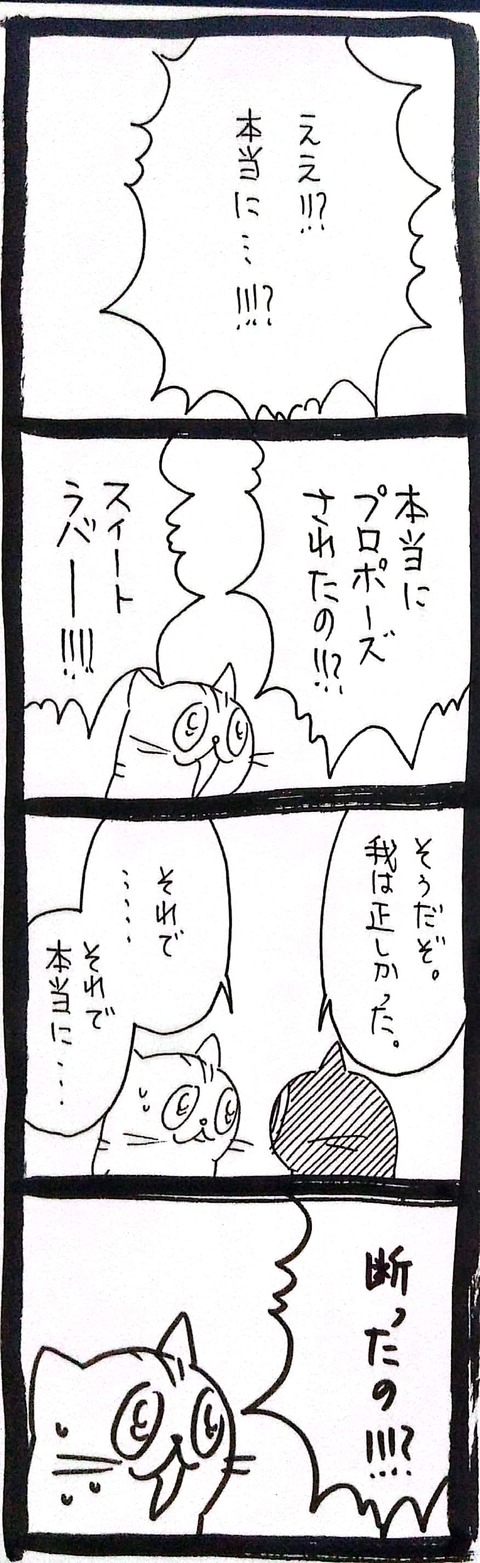 ええ!!?
本当に…!!!?
本当に
プロポーズ
されたの!!?
スィート
ラバー!!!!
そうだぞ。
我は正しかった。
それで
……
それで
本当に…
断ったの!!!?